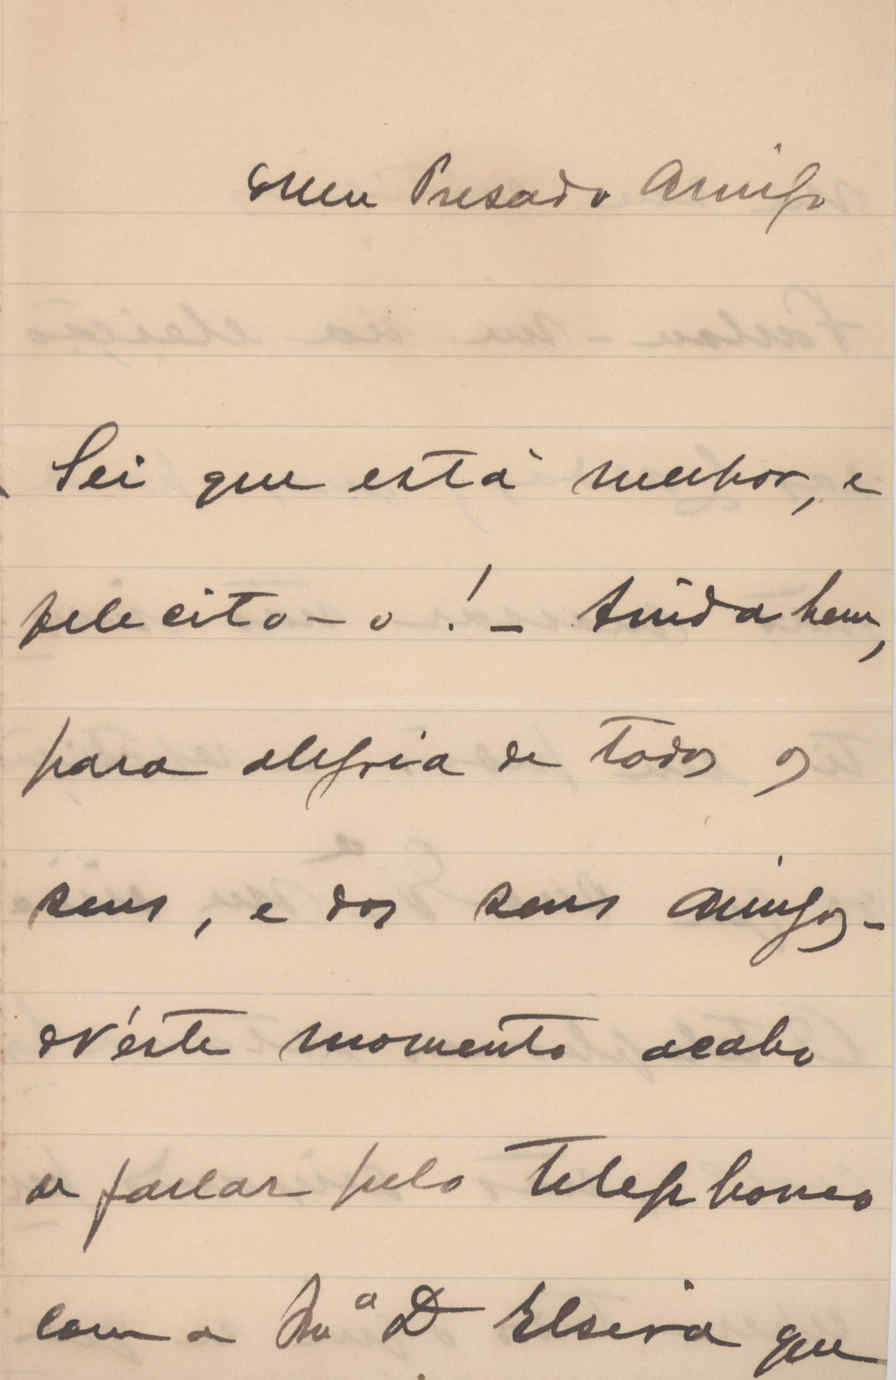 Meu Presado Amigo
Sei que está melhor, e
felecito-o! - Ainda bem,
para alegria de todos os
seus, e dos seus amigos -
N'éste momento acabo
de fallar pelo telephoneo
com a Sra D Elseira que